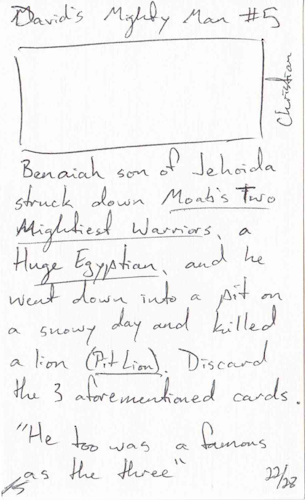 David's Mighty Man #5
Christian
Benaiah son of Jehoida
struck down Moab's Two
Mightiest Warriors, a
Huge Egyptian, and he
went down into a pit on
a snowy day and killed
a lion (Pit Lion). Discard
the 3 aforementioned cards.
"He too was a famous
as the three"
22/28